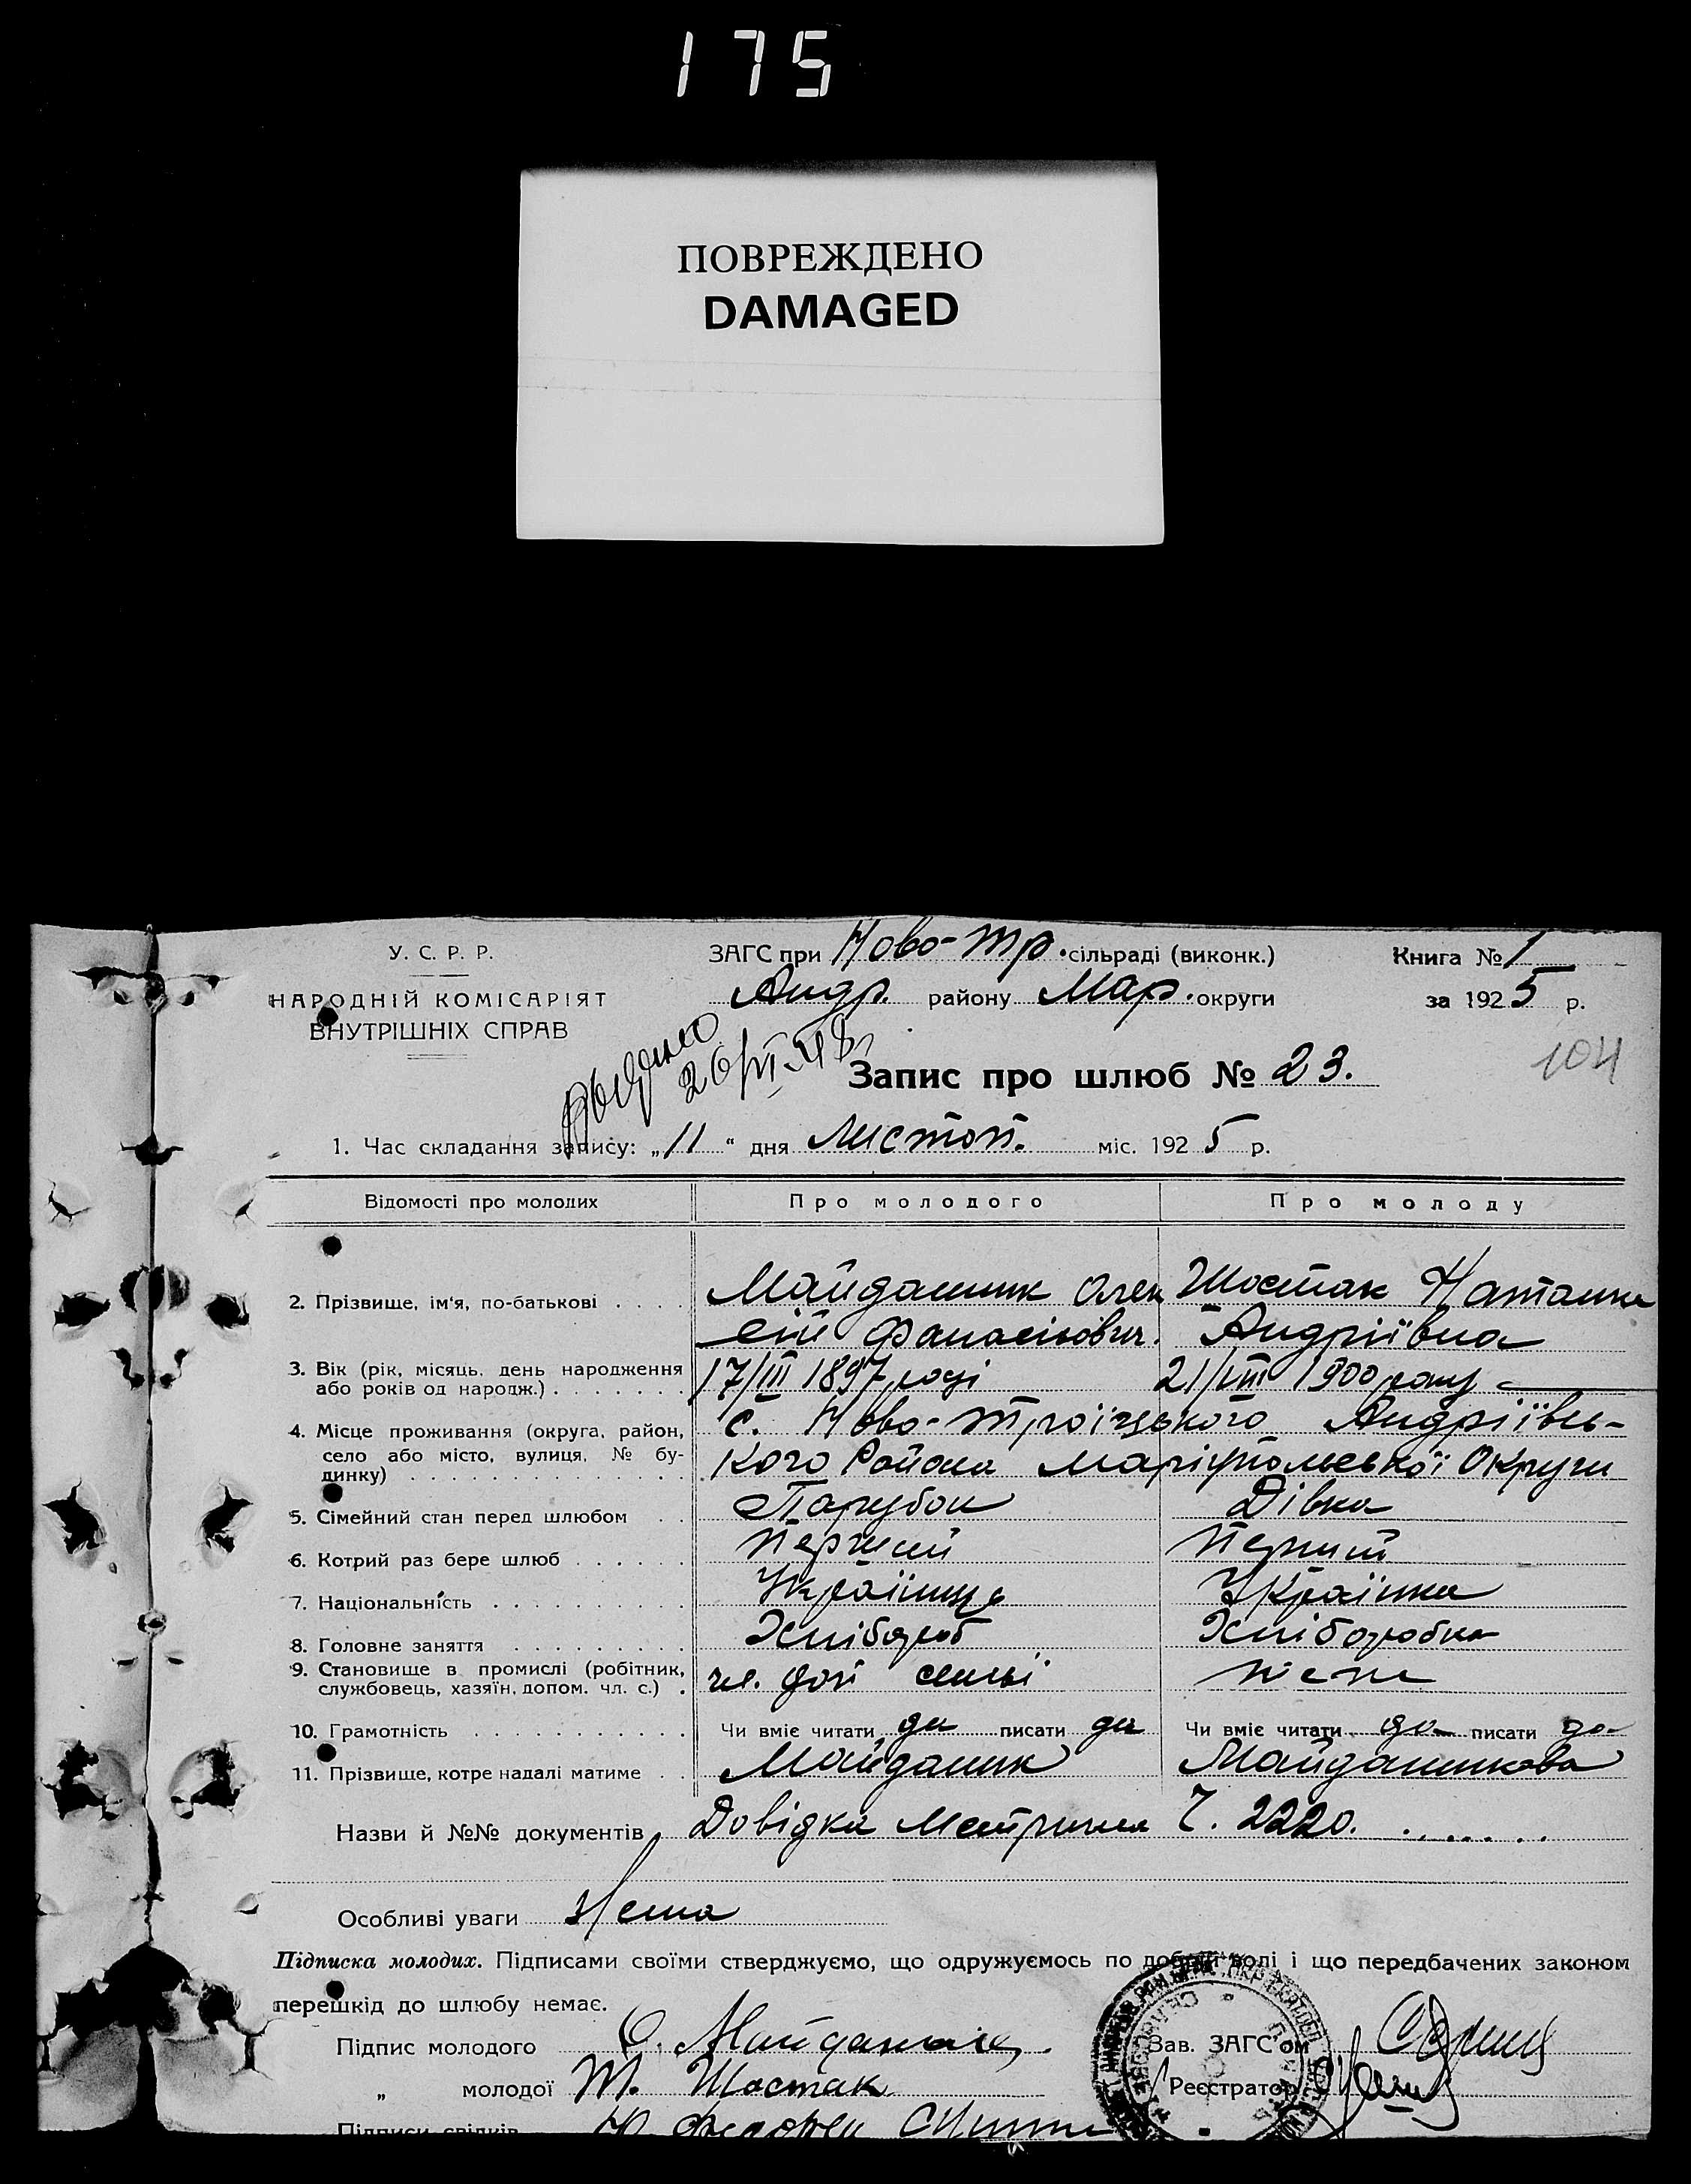 175
ПОВРЕЖДЕНО
DAMAGED
У. С. Р. Р.
НАРОДНІЙ КОМІСАРІЯТ
ВНУТРІШНІХ СПРАВ
ЗАГС при Ново-Тр. сільраді (виконк.)
Андр. району Мар. округи
Книга № 1
за 1925 р.
104
Запис про шлюб № 23.
1. Час складання запису: „11“ дня Листоп. міс. 1925 р.
Відомості про молодих Про молодого Про молоду
2. Прізвище, ім'я, по-батькові . . . . Майданник Олек Шостак
сій Фанасійович. Андріївна
3. Вік (рік, місяць, день народження 17/III 1897 році 21/VIII 1900 року
або років од народж.) . . . . . . .
4. Місце проживання (округа, район, с. Ново-Троїцького Андріївсь-
село або місто, вулиця, № бу- кого Района Маріупольської Округи
динку) . . . . . . . . . . . . . . .
5. Сімейний стан перед шлюбом . . Парубок Дівка
6. Котрий раз бере шлюб . . . . . . Перший Перший
7. Національність . . . . . . . . . . Українець Українка
8. Головне заняття . . . . . . . . . Хлібороб Хліборобка
9. Становище в промислі (робітник, чл. доп семьї
службовець, хазяїн, допом. чл. с.) .
10. Грамотність . . . . . . . . . . . Чи вміє читати да писати да Чи вміє читати да писати да
11. Прізвище, котре надалі матиме . . Майданник Майданникова
Назви й №№ документів Довідка Метрична Ч. 2220. . . . . . .
Особливі уваги Нема
Підписка молодих. Підписами своїми стверджуємо, що одружуємось по добрій волі і що передбачених законом
перешкід до шлюбу немає.
Підпис молодого О. Майданник
Зав. ЗАГС'ом
„ молодої Т. Шостак
Реєстратор
Підписи свідків